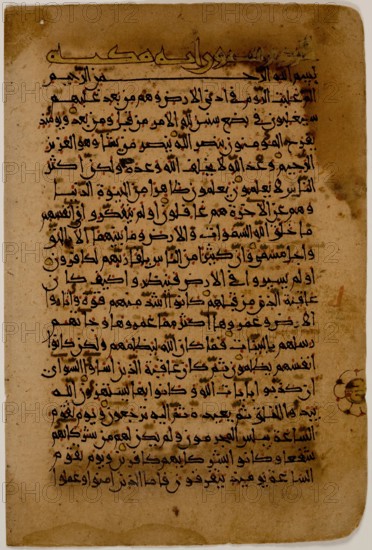 مكية
بسم الله الرحمن الرحيم
الم غلبت الروم في ادنى الارض وهم من بعد غلبهم
سيغلبون في بضع سنين لله الامر من قبل ومن بعد ويومئذ
يفرح المومنون بنصر الله ينصر من يشا وهو العزيز
الرحيم وعد الله لا يخلف الله وعده ولكن اكثر
الناس لا يعلمون يعلمون ظاهرا من الحيوة الدنيا
وهم عن الاخرة هم غافلون اولم يتفكروا في انفسهم
ما خلق الله السموات والارض وما بينهما الا بالحق
واجل مسمى وان كثيرا من الناس بلقاى ربهم لكافرون
اولم يسيروا في الارض فينظروا كيف كان
عاقبة الذين من قبلهم كانوا اشد منهم قوة واثاروا
الارض وعمروها اكثر مما عمروها وجاتهم
رسلهم بالبينات فما كان الله ليظلمهم ولكن كانوا
انفسهم يظلمون ثم كان عاقبة الذين اساوا السواى
ان كذبوا بايات الله وكانوا بها يستهزون الله
يبدوا الخلق ثم يعيده ثم اليه ترجعون ويوم تقوم
الساعة يبلس المجرمون ولم يكن لهم من شركايهم
شفعوا وكانوا بشركايهم كافرين ويوم تقوم
الساعة يوميذ يتفرقون فاما الذين امنوا وعملوا